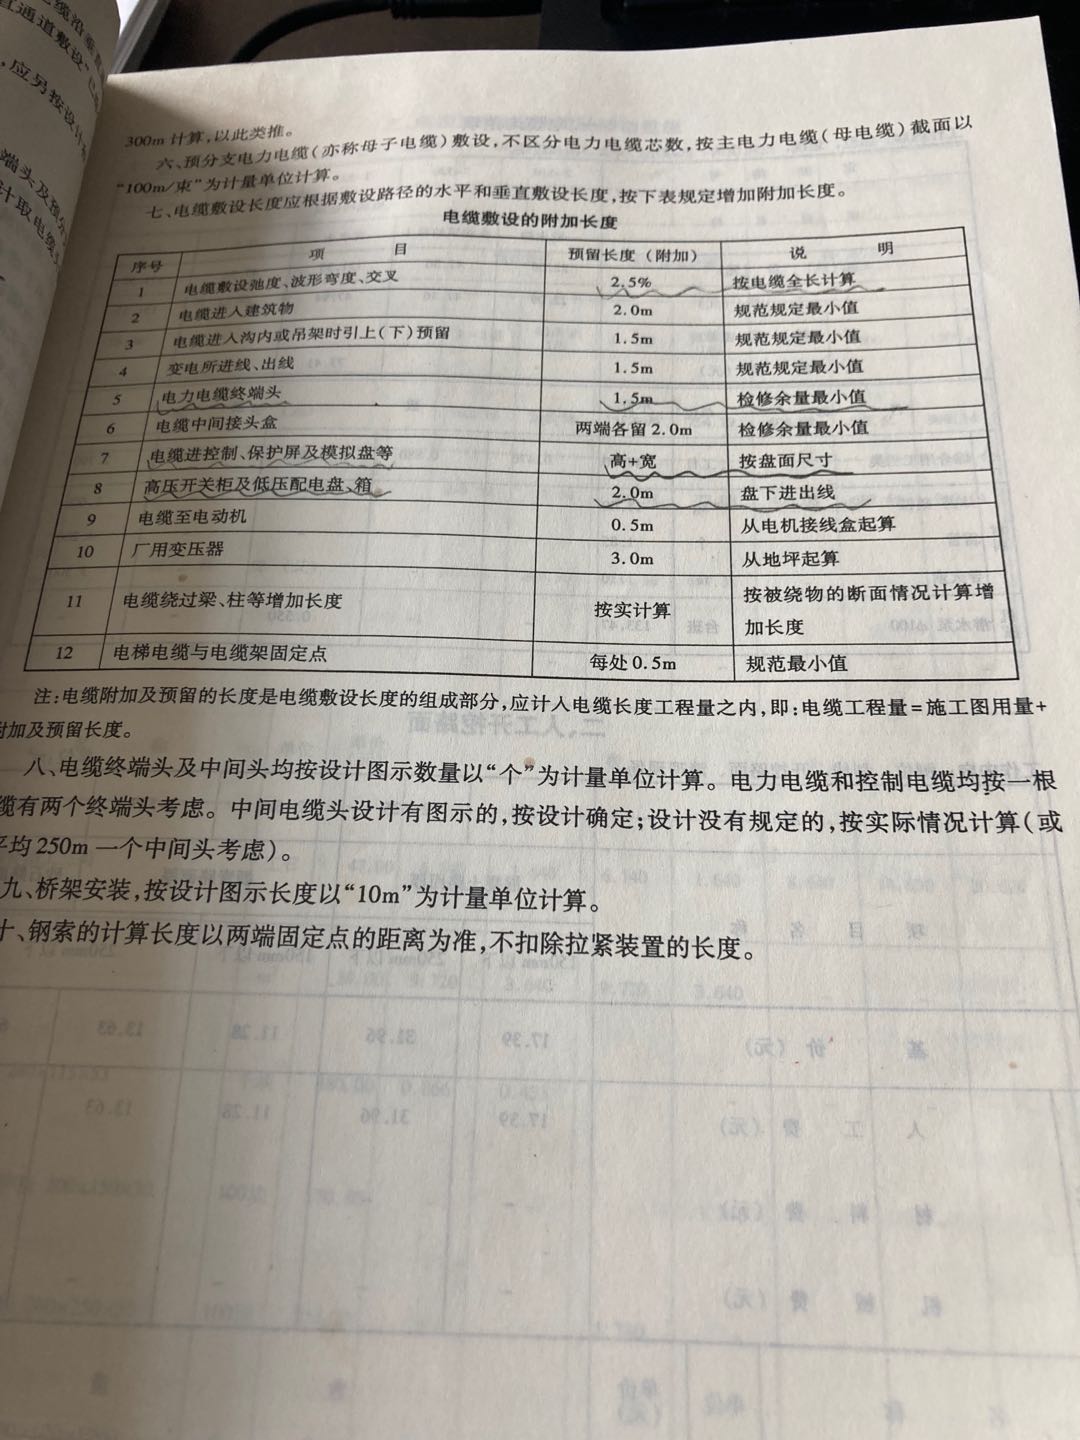 缆沿垂直
直通道敷设”已
，应另按设计
端头及预分
计取电缆
300m 计算，以此类推。
六、预分支电力电缆（亦称母子电缆）敷设，不区分电力电缆芯数，按主电力电缆（母电缆）截面以
“100m/束”为计量单位计算。
七、电缆敷设长度应根据敷设路径的水平和垂直敷设长度，按下表规定增加附加长度。
电缆敷设的附加长度
序号 项 目 预留长度（附加） 说 明
1 电缆敷设弛度、波形弯度、交叉 2.5% 按电缆全长计算
2 电缆进入建筑物 2.0m 规范规定最小值
3 电缆进入沟内或吊架时引上（下）预留 1.5m 规范规定最小值
4 变电所进线、出线 1.5m 规范规定最小值
5 电力电缆终端头 1.5m 检修余量最小值
6 电缆中间接头盒 两端各留 2.0m 检修余量最小值
7 电缆进控制、保护屏及模拟盘等 高+宽 按盘面尺寸
8 高压开关柜及低压配电盘、箱 2.0m 盘下进出线
9 电缆至电动机 0.5m 从电机接线盒起算
10 厂用变压器 3.0m 从地坪起算
11 电缆绕过梁、柱等增加长度 按实计算 按被绕物的断面情况计算增
加长度
12 电梯电缆与电缆架固定点 每处 0.5m 规范最小值
注：电缆附加及预留的长度是电缆敷设长度的组成部分，应计入电缆长度工程量之内，即：电缆工程量=施工图用量+
附加及预留长度。
八、电缆终端头及中间头均按设计图示数量以“个”为计量单位计算。电力电缆和控制电缆均按一根
缆有两个终端头考虑。中间电缆头设计有图示的，按设计确定；设计没有规定的，按实际情况计算（或
平均 250m 一个中间头考虑）。
九、桥架安装，按设计图示长度以“10m”为计量单位计算。
十、钢索的计算长度以两端固定点的距离为准，不扣除拉紧装置的长度。